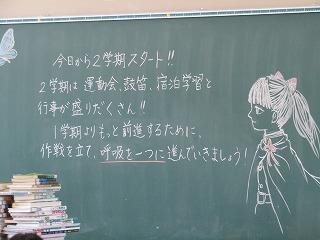 今日から2学期スタート!!
2学期は運動会、鼓笛、宿泊学習と
行事が盛りだくさん!!
1学期よりもっと前進するために、
作戦を立て、呼吸を一つに進んでいきましょう!